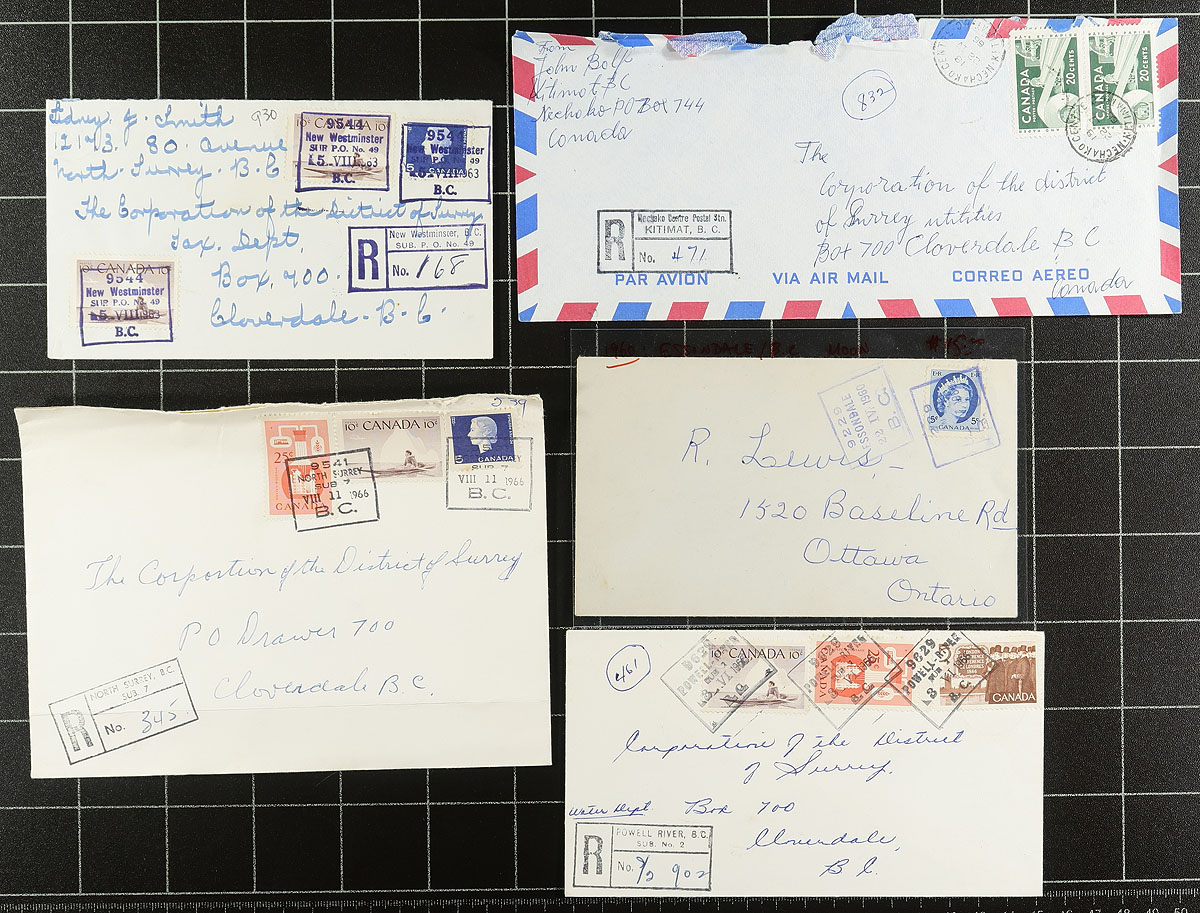 Sidney J. Smith
930
12173. 80. Avenue
North. Surrey. B.C
The Corporation of the District of Surrey
Tax. Dept,
Box, 700.
Cloverdale. B.C.
10¢ CANADA 10¢
9544
New Westminster
SUB P.O. No. 49
15 VIII 1963
B.C.
5 CANADA
9544
New Westminster
SUB P.O. No. 49
15 VIII 1963
B.C.
10¢ CANADA 10¢
9544
New Westminster
SUB P.O. No. 49
15 VIII 1963
B.C.
R
New Westminster, B.C.
SUB. P. O. No. 49
No. 168
From
John Bolf
Kitimat B C
Nechako PO Box 744
Canada
832
CANADA
20 CENTS
CANADA
20 CENTS
The
Corporation of the district
of Surrey utilities
Box 700 Cloverdale B C
Canada
R
Nechako Centre Postal Stn.
KITIMAT, B. C.
No. 471
PAR AVION VIA AIR MAIL CORREO AEREO
1960 ESSONDALE / B.C.
9229
ESSONDALE
22 IV 1960
B. C.
5¢ CANADA 5¢
R. Lewis
1520 Baseline Rd
Ottawa
Ontario
239
25¢
CANADA
10¢ CANADA 10¢
5 CANADA
9541
NORTH SURREY
SUB 7
VIII 11 1966
B. C.
SUB 7
VIII 11 1966
B. C.
The Corportion of the District of Surrey
PO Drawer 700
Cloverdale B.C.
R
NORTH SURREY, B.C.
SUB. 7
No. 345
461
CANADA 10¢
9629
POWELL RIVER
B. C.
25¢
CANADA
9629
B. C.
9629
POWELL RIVER
B. C.
CANADA
Corporation of the District
of Surrey.
Water Dept Box 700
Cloverdale,
B.C.
R
POWELL RIVER, B.C.
SUB. No. 2
No. 902